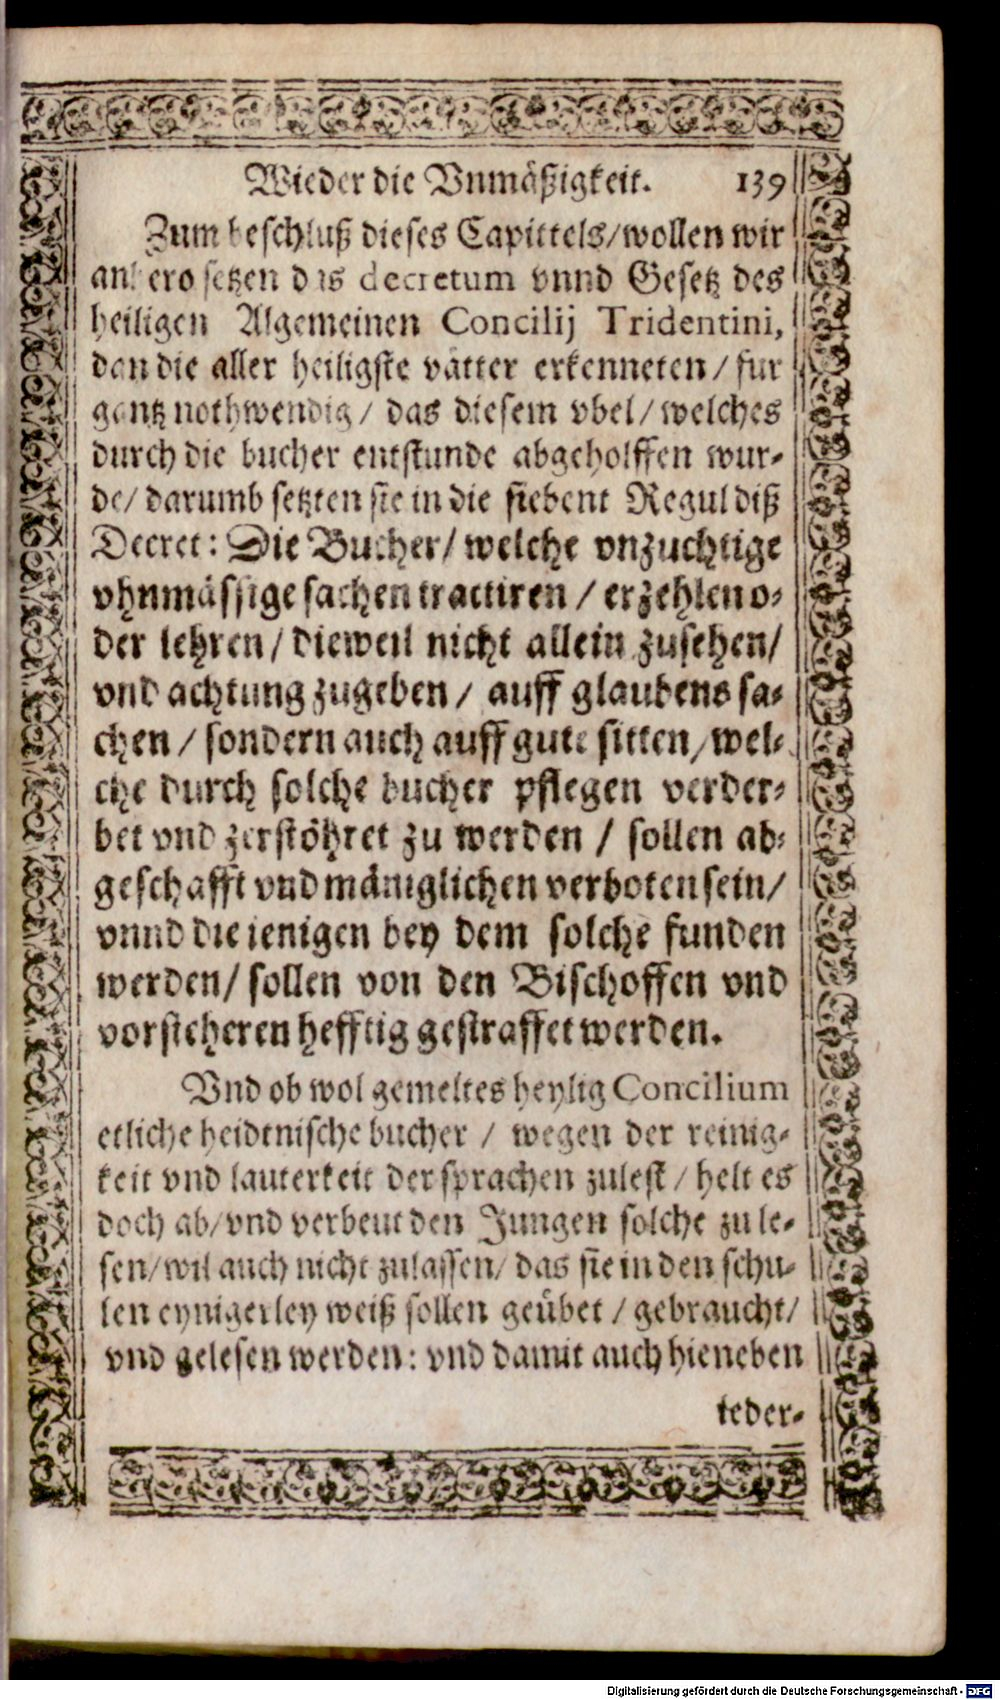 Wieder die Vnmäßigkeit. 139
Zum beschluß dieses Capittels/wollen wir
anhero setzen das decretum vnnd Gesetz des
heiligen Algemeinen Concilij Tridentini,
dan die aller heiligste vätter erkenneten / fur
gantz nothwendig / das diesem vbel / welches
durch die bucher entstunde abgeholffen wur-
de/ darumb setzten sie in die siebent Regul diß
Decret: Die Bucher/ welche vnzuchtige
vhnmässige sachen tractiren / erzehlen o-
der lehren / dieweil nicht allein zusehen/
vnd achtung zugeben / auff glaubens sa-
chen / sondern auch auff gute sitten/wel-
che durch solche bucher pflegen verder-
bet vnd zerstöhret zu werden / sollen ab-
geschafft vnd mäniglichen verboten sein/
vnnd die ienigen bey dem solche funden
werden/ sollen von den Bischoffen vnd
vorsteheren hefftig gestraffet werden.
Vnd ob wol gemeltes heylig Concilium
etliche heidtnische bucher / wegen der reinig-
keit vnd lauterkeit der sprachen zulest / helt es
doch ab/vnd verbeut den Jungen solche zu le-
sen/wil auch nicht zulassen/ das sie in den schu-
len eynigerley weiß sollen geübet / gebraucht/
vnd gelesen werden: vnd damit auch hieneben
ieder-
Digitalisierung gefördert durch die Deutsche Forschungsgemeinschaft - DFG